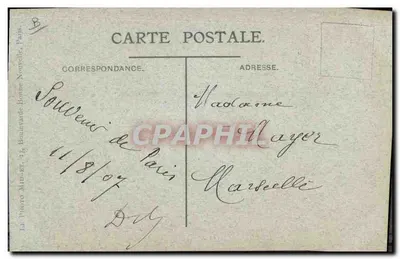 CARTE POSTALE.
CORRESPONDANCE.
ADRESSE.
Souvenir
de Paris
11/8/07
Madame
Mayer
Marseille
CPAPHIL